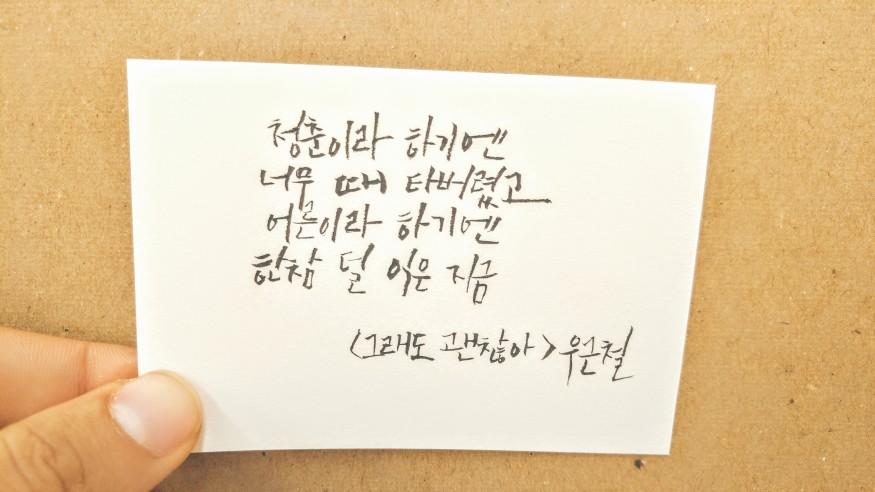 청춘이라 하기엔
너무 때 타버렸고
어른이라 하기엔
한참 덜 익은 지금
<그래도 괜찮아> 우근철